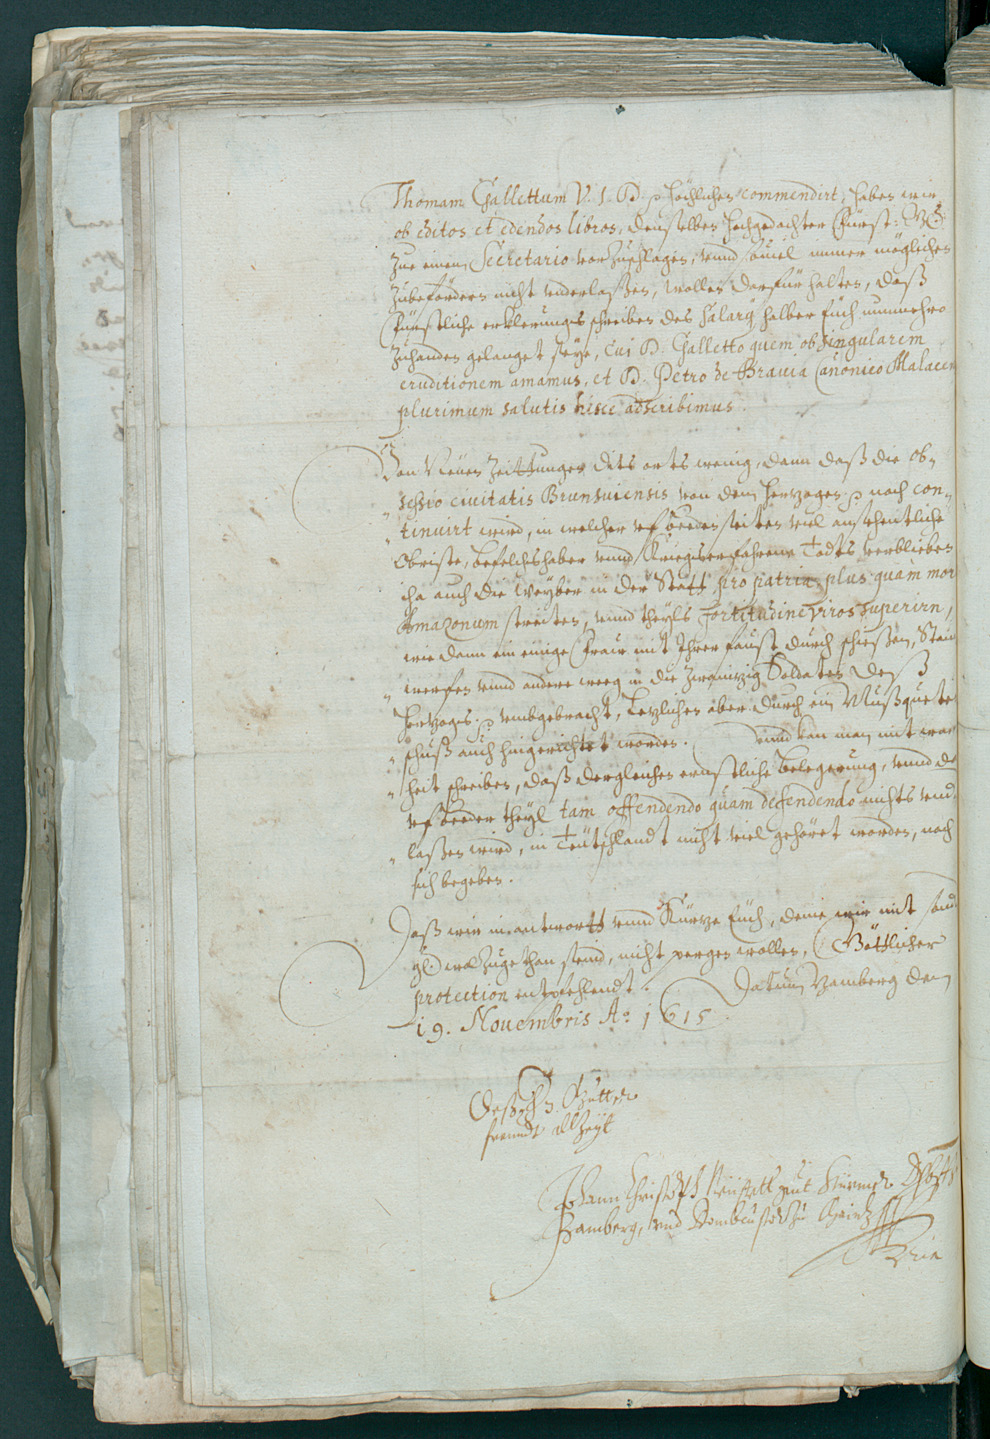 Thomam Gallettum V. I. D. p höchlichen commendirt, haben wir
ob editos et edendos libros, denselben hochgedachter Fürst: G:
zue einem Secretario vorzuschlagen, vnnd souiel immer möglichen
zubefördern nicht vnderlaßen, wollen darfür halten, daß
Fürstliche erklerungs schreiben des Salarÿ halber Euch nunmehro
zuhanden gelanget seye, cui D. Galletto quem ob singularem
eruditionem amamus, et D. Petro de Brauia Canonico Malacen
plurimum salutis hisce adscribimus.
Von Neüen Zeittungen dits orts wenig, dann daß die ob-
sessio ciuitatis Brunsuicensis von dem Herzogen p noch con-
tinuirt wird, in welcher vf beeden seiten viel ansehentliche
Obriste, befelchshaber vnnd Kriegserfahrene Todts verblieben
iha auch die Weyber in der Statt pro patria plus quàm mor
Amazonum streiten, vnnd theyls fortitudine viros superirn,
wie dann ein einige Fraw mit Ihrer Faust durch schießen, Stein
werfen vnnd andere weeg in die zwainzig Soldaten deß
Herzogs p vmbgebracht, letzlichen aber durch ein Mußqueten
schuß auch hingerichtet worden. vnnd kan man mit war
heit schreiben, daß dergleichen ernstliche belegerung, vnnd de
vf beeder theyl tam offendendo quàm defendendo nichts vnd
laßen wird, in Teütschlandt nicht viel gehöret worden, noch
sich begeben.
Daß wir in antwortt vnnd Kürze Euch, deme wir mit sond
gd. wol zugethan seind, nicht pergen wollen, Göttlicher
protection entpfehlendt. Datum Bamberg den
19. Nouembris Aº. 1615.
Deß H. Gutter
freundt allzeyt
Johann Christoph Neüstatt gnt Stürmer
Bamberg, vnd Dombcustos zu Maintz